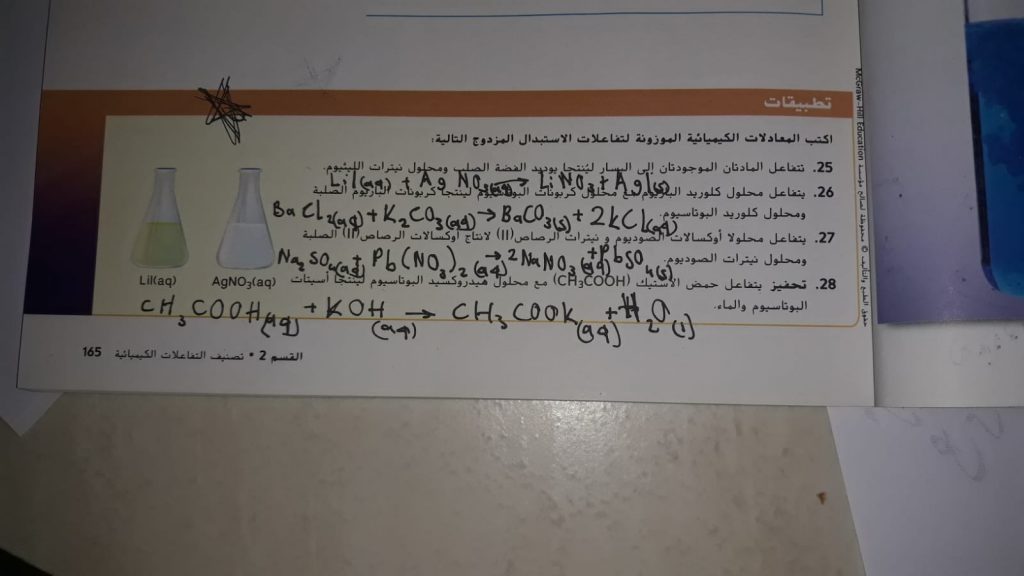 تطبيقات
اكتب المعادلات الكيميائية الموزونة لتفاعلات الاستبدال المزدوج التالية:
25. تتفاعل المادتان الموجودتان إلى اليسار ليُنتجا يوديد الفضة الصلب ومحلول نيترات الليثيوم.
LiI(aq) + AgNO3(aq) → LiNO3 + AgI(s)
26. يتفاعل محلول كلوريد الباريوم مع محلول كربونات البوتاسيوم لينتجا كربونات الباريوم الصلبة
ومحلول كلوريد البوتاسيوم.
BaCl2(aq) + K2CO3(aq) → BaCO3(s) + 2kCl(aq)
27. يتفاعل محلولا أوكسالات الصوديوم و نيترات الرصاص(II) لانتاج أوكسالات الرصاص(II) الصلبة
ومحلول نيترات الصوديوم.
Na2SO4(aq) + Pb(NO3)2(aq) → 2NaNO3(aq) + PbSO4(s)
28. تحفيز يتفاعل حمض الأستيك (CH3COOH) مع محلول هيدروكسيد البوتاسيوم لينتجا أسيتات
البوتاسيوم والماء.
CH3COOH(aq) + KOH(aq) → CH3COOK(aq) + H2O(l)
LiI(aq)
AgNO3(aq)
القسم 2 • تصنيف التفاعلات الكيميائية 165
حقوق الطبع والتأليف © محفوظة لصالح مؤسسة McGraw-Hill Education